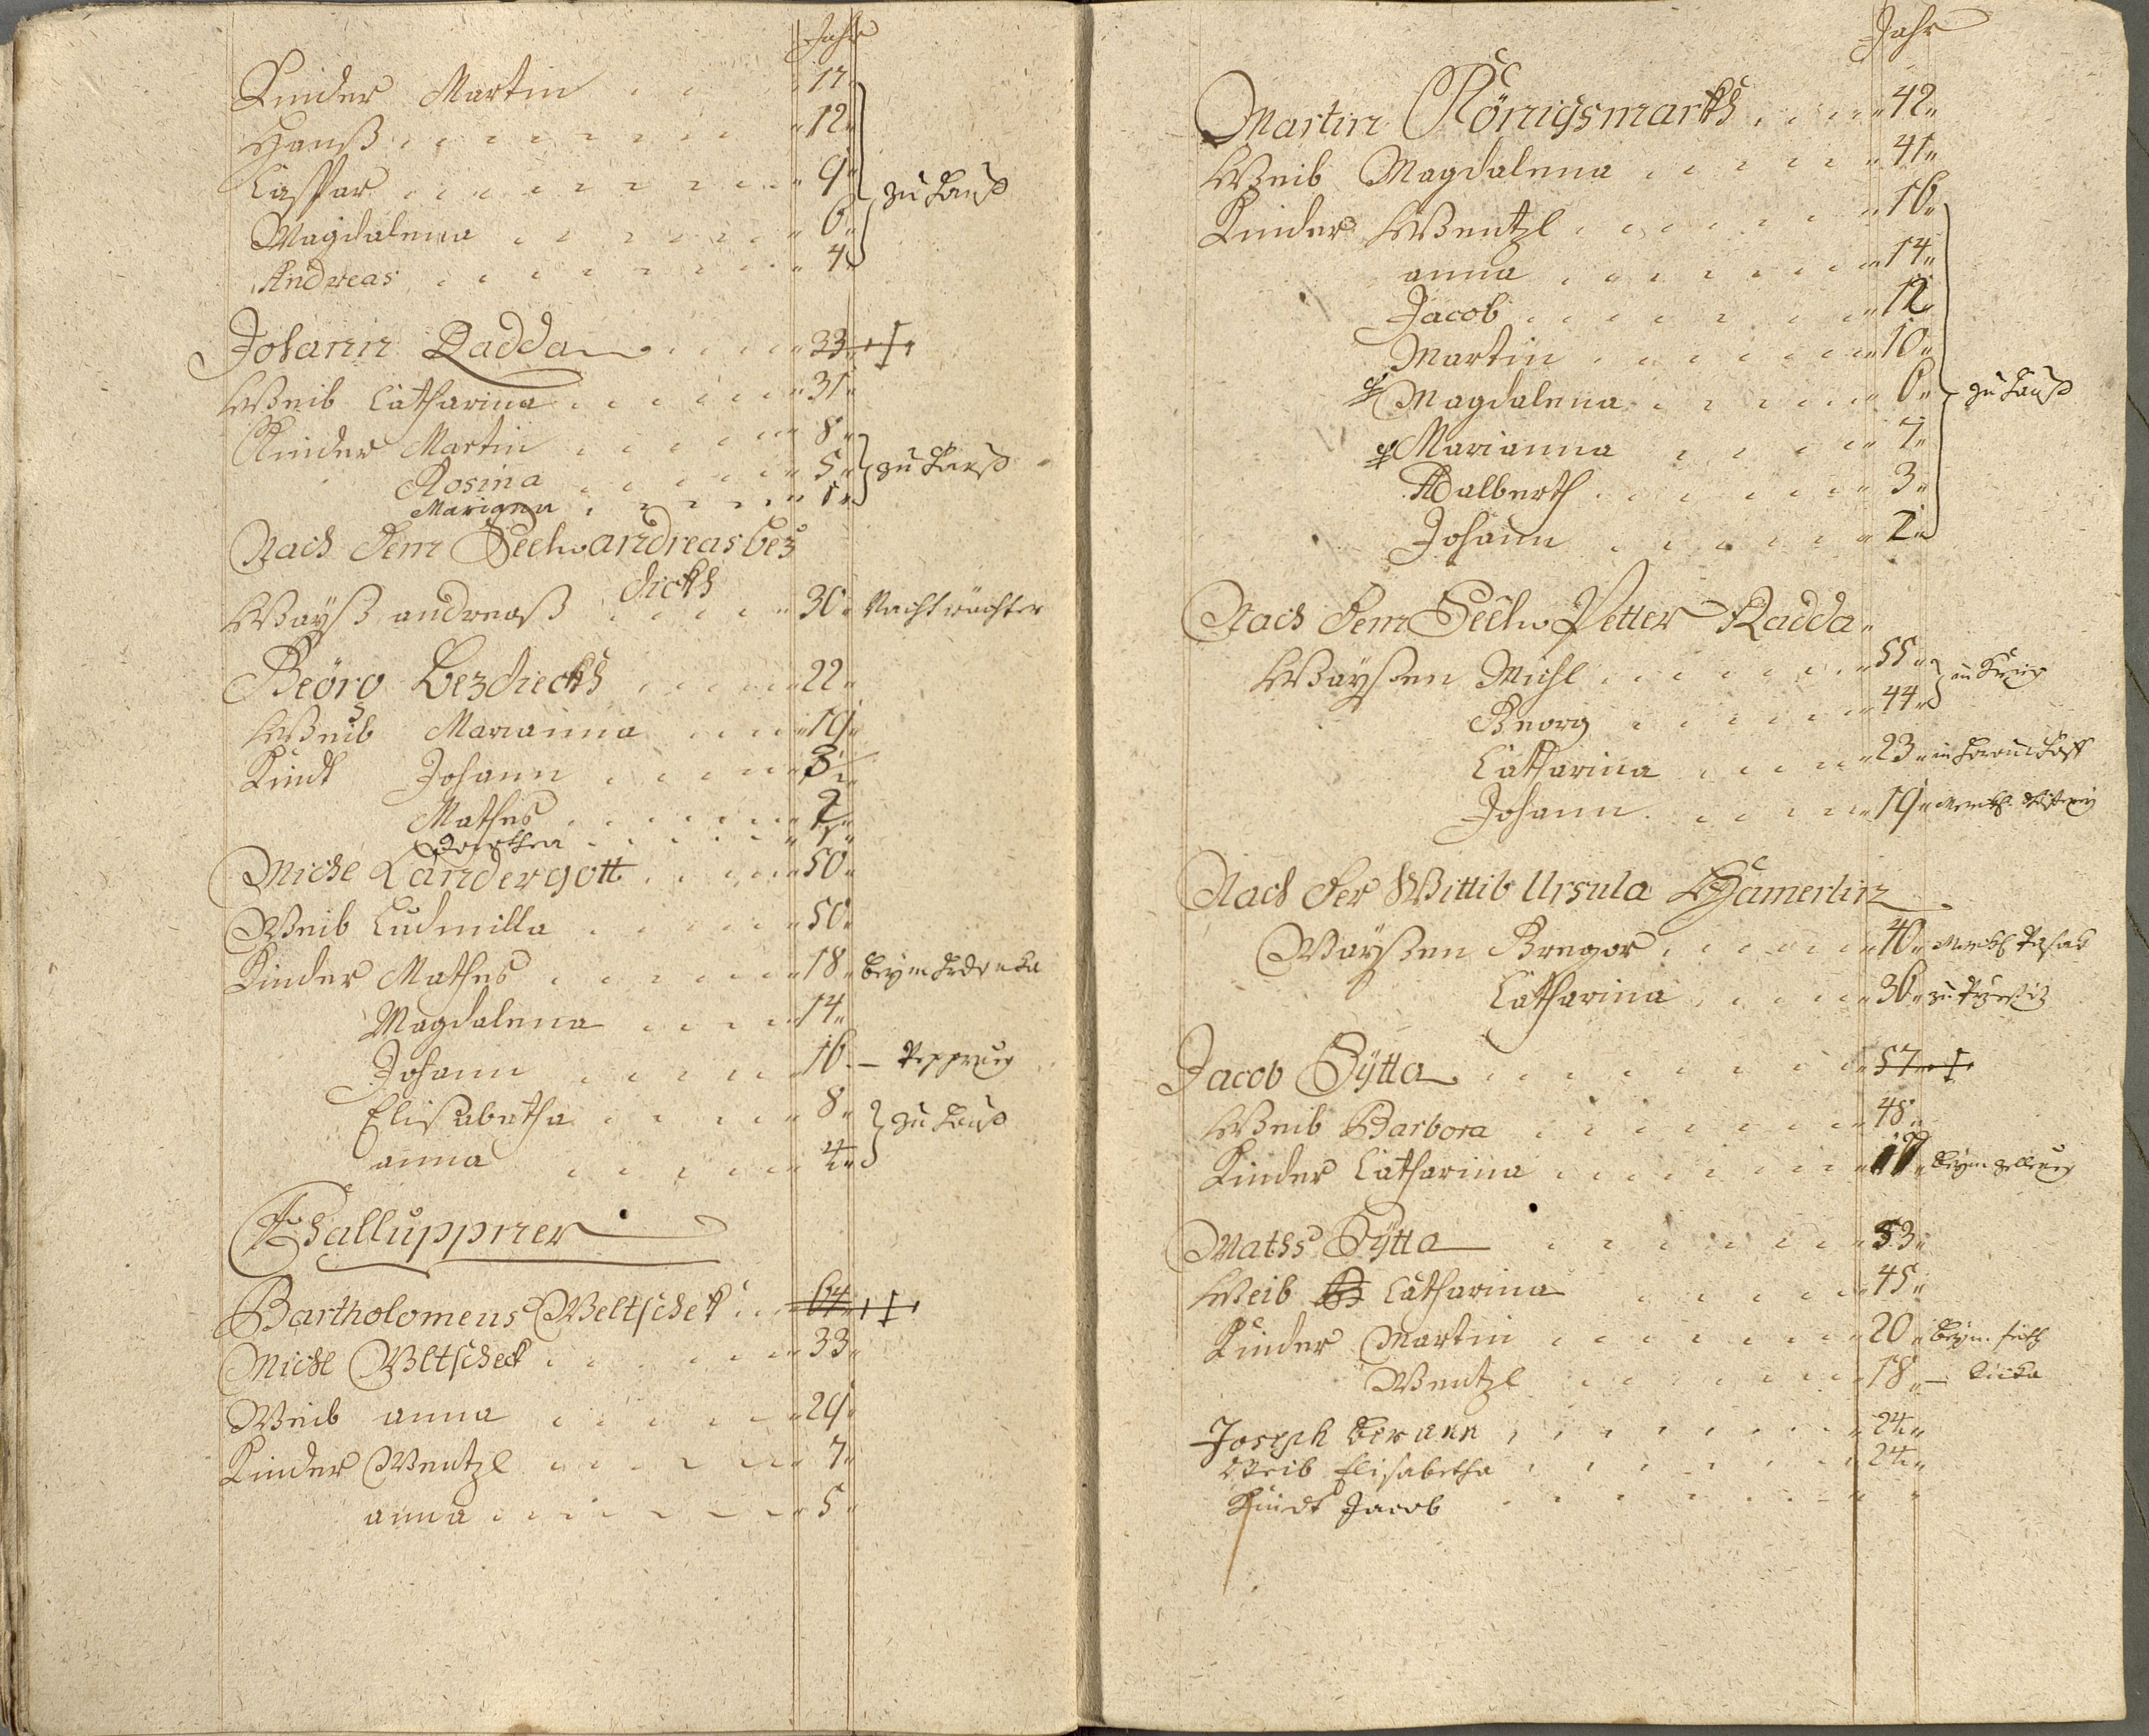 Jahr
Kinder Martin 17
Hanß 12
Caspar 9 zu Hauß
Magdalena 6
Andreas 4
Johann Radda 33 †
Weib Catharina 31
Kinder Martin 8
Rosina 5 zu Hauß
Marianna 1
Nach dem Seel. andreas bez
dickh
Wayß andreaß 30 Nachtwächter
Georg Bezdieckh 22
Weib Marianna 19
Kindt Johann
Mathes
Dorothea
Michl Landergott 50
Weib Ludmilla 50
Kinder Mathes 18 beym
Magdalena 14
Johann 16 —
Elisabetha 8 zu Hauß
anna 4
Challuppner
Bartholomeus Weltschek 64 †
Michl Weltscheck 33
Weib anna 29
Kinder Wentzl 7
anna 5
Jahr
Martin Königsmarkh 42
Weib Magdalena 41
Kinder Wentzl 16
anna 14
Jacob 12
Martin 10
Magdalena 6 zu Hauß
Marianna 7
Adalberth 3
Johann 2
Nach dem Seel. Petter Radda
Waysen Michl 55
Georg 44
Catharina 23
Johann 19
Nach der Wittib Ursula Hamerlin
Waysen Gregor 40
Catharina 36 zu
Jacob Sÿtta 57 †
Weib Barbora 48
Kinder Catharina beym
Maths Sÿtta 53
Weib Catharina 45
Kinder Martin 20 beym
Wentzl 18 —
Joseph Beran 24
Weib Elisabetha 24
Kindt Jacob